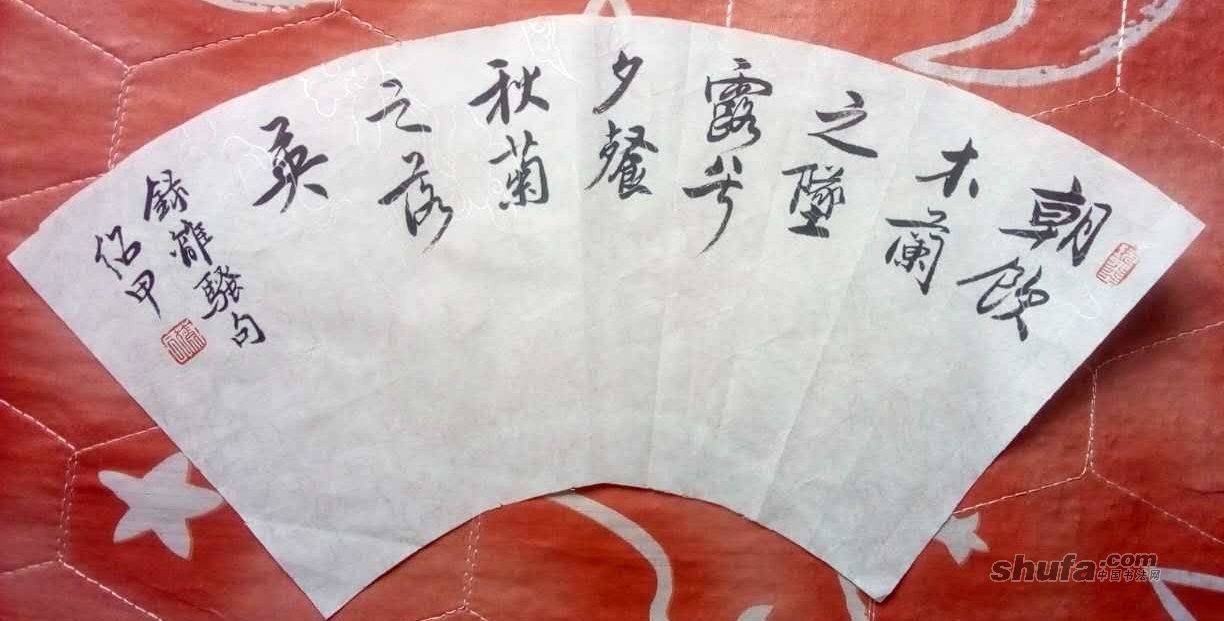 朝飲
木蘭
之墜
露兮
夕餐
秋菊
之落
英
録離騷句
紹甲
shufa.com
中国书法网